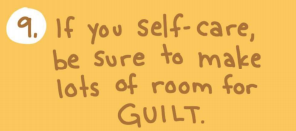 9. If you self-care,
be sure to make
lots of room for
GUILT.